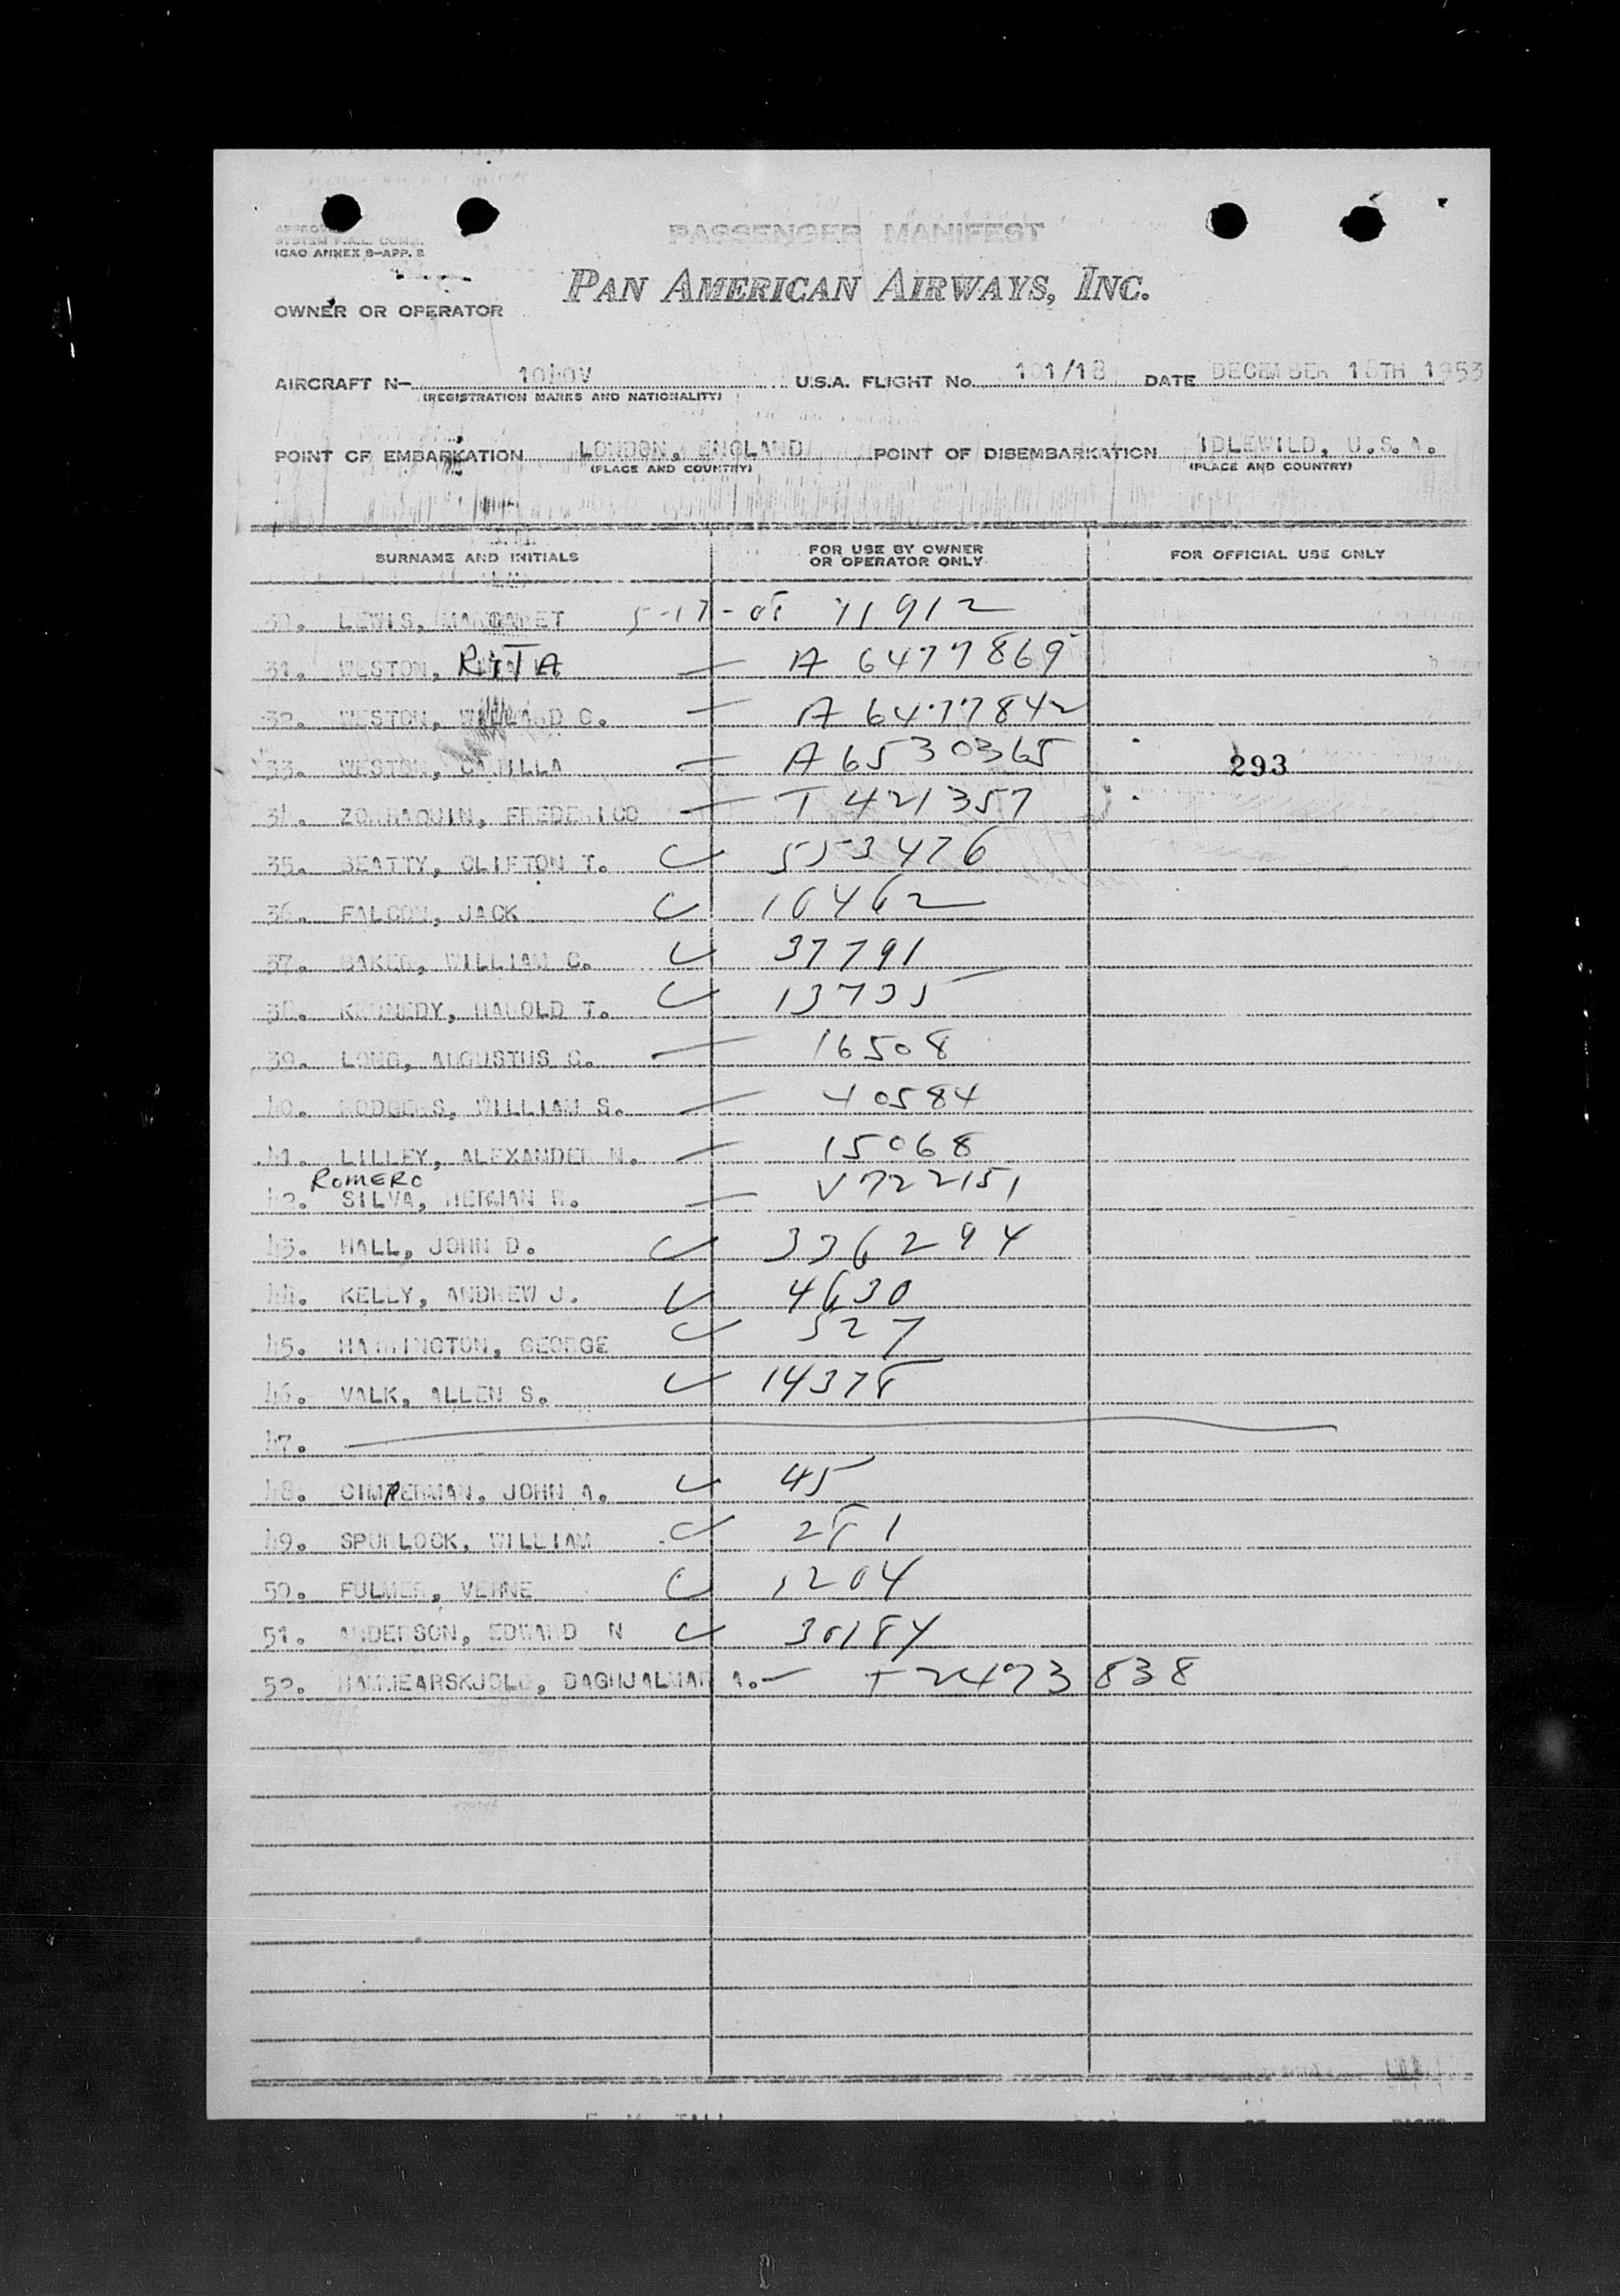 PASSENGER MANIFEST
SYSTEM F.A.L. COM.
ICAO ANNEX 9-APP. 2
PAN AMERICAN AIRWAYS, INC.
OWNER OR OPERATOR
AIRCRAFT N- U.S.A. FLIGHT No. 101/18 DATE DECEMBER 18TH 1953
(REGISTRATION MARKS AND NATIONALITY)
POINT OF EMBARKATION LONDON, ENGLAND POINT OF DISEMBARKATION IDLEWILD, U.S.A.
(PLACE AND COUNTRY) (PLACE AND COUNTRY)
SURNAME AND INITIALS FOR USE BY OWNER OR OPERATOR ONLY FOR OFFICIAL USE ONLY
30. LEWIS, MARGARET 5-17-08 71912
31. WESTON, RITA — A 6477869
32. WESTON, C. — A 6477842
33. WESTON, CAMILLA — A 6530365 293
34. ZORRAQUIN, FREDERICO — T 421357
35. BEATTY, CLIFTON T. C 553476
36. FALCON, JACK C 10462
37. BAKER, WILLIAM C. C 37791
38. KENNEDY, HAROLD T. C 13735
39. LONG, AUGUSTUS C. — 16508
40. RODGERS, WILLIAM S. — 40584
41. LILLEY, ALEXANDER N. — 15068
ROMERO
42. SILVA, HERMAN — V722151
43. HALL, JOHN D. C 336294
44. KELLY, ANDREW J. C 4630
45. HARRINGTON, GEORGE C 527
46. VALK, ALLEN S. C 14378
47.
48. CIMPERMAN, JOHN A. C 45
49. SPURLOCK, WILLIAM C 281
50. FULMER, VERNE C 1204
51. ANDERSON, EDWARD N C 30184
52. HAMMEARSKJOLD, DAGHJALMAR A. — T 2473838